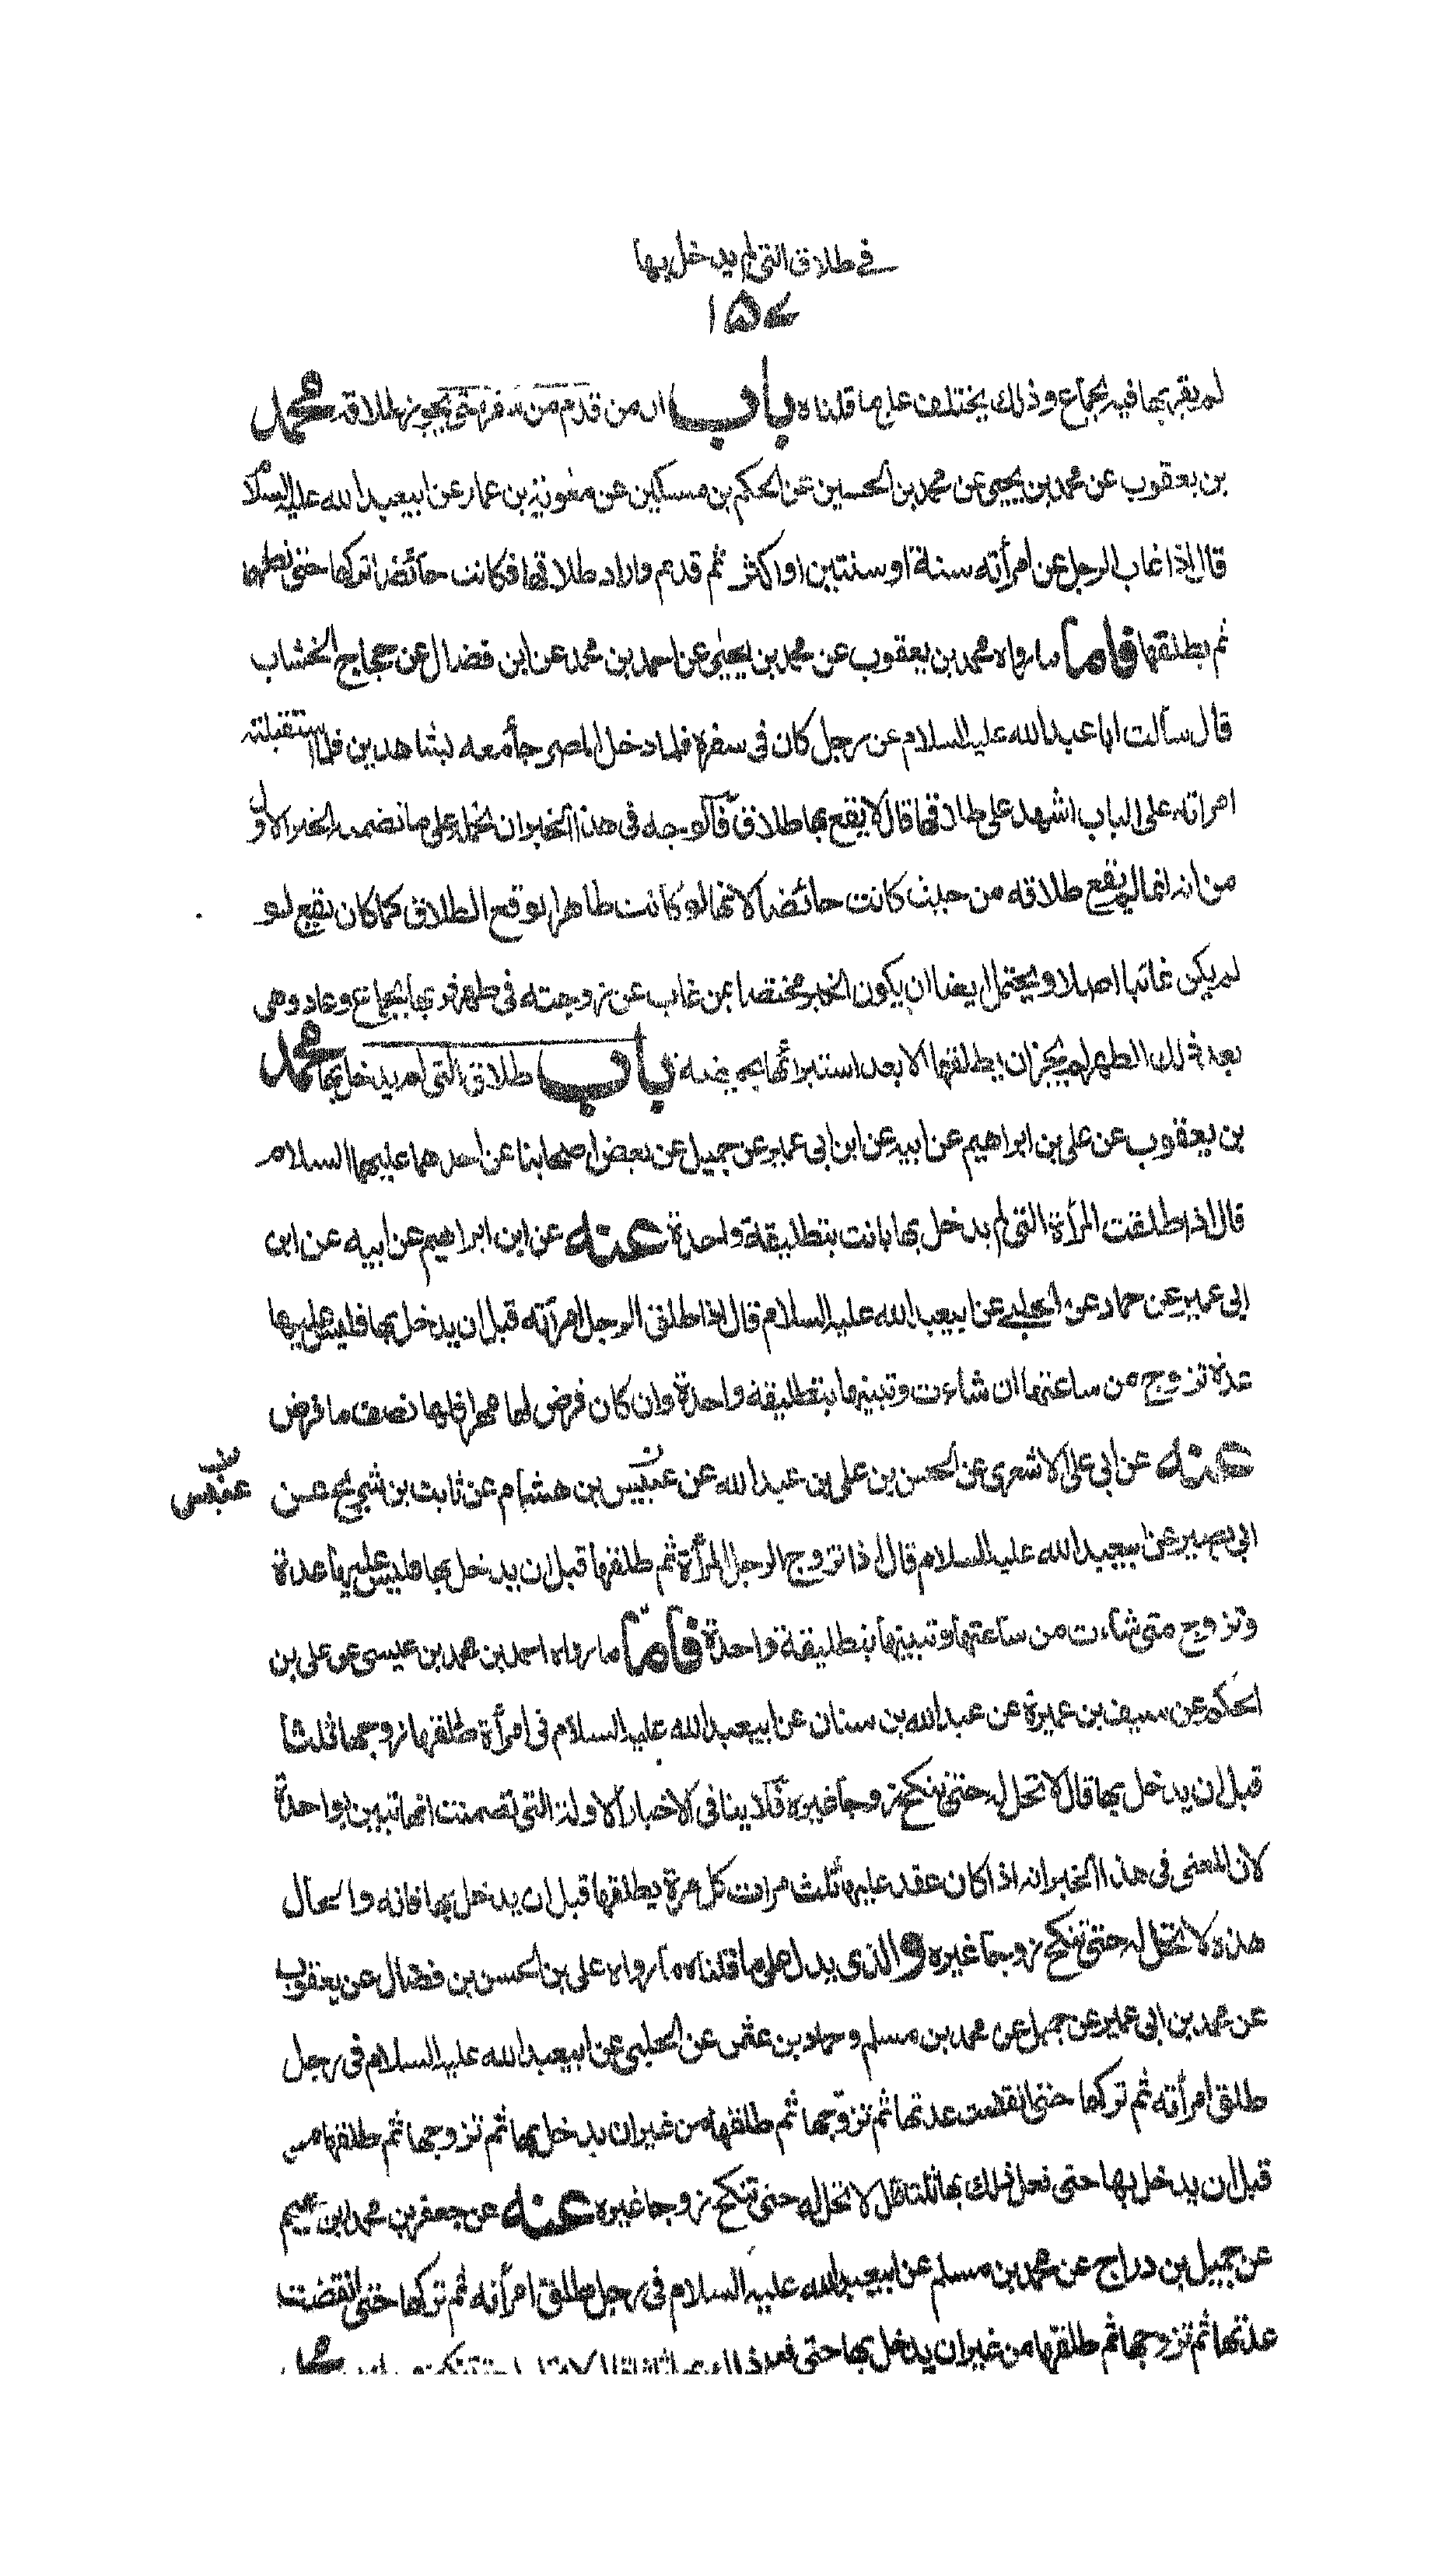 في طلاق التى لم يدخل بها
١٥٤
لم يقربها فيه بجماع وذلك يختلف على ما قلناه باب ان من قدم من سفر متى يجوز طلاقه محمد
بن يعقوب عن محمد بن يحيى عن محمد بن الحسين عن الحكم بن مسكين عن معوية بن عمار عن ابيعبد الله عليه السلام
قال اذا غاب الرجل عن امرأته سنة او سنتين او اكثر ثم قدم واراد طلاقها فكانت حائضا تركها حتى تطهر
ثم يطلقها فاما ما رواه محمد بن يعقوب عن محمد بن يحيى عن احمد بن محمد عن ابن فضال عن حجاج الخشاب
قال سألت ابا عبد الله عليه السلام عن رجل كان فى سفره فلما دخل المصر جاء معه بشاهدين فلما استقبلته
امراته على الباب اشهد على طلاقها قال لا يقع بها طلاق فالوجه فى هذا الخبر ان نحمله على ما تضمنه الخبر الاول
من انه انما لم يقع طلاقه من حيث كانت حائضا لانها لو كانت طاهرا لوقع الطلاق كما كان يقع لو
لم يكن غائبا اصلا ويحتمل ايضا ان يكون الخبر مختصا بمن غاب عن زوجته فى طهر قربها بجماع وعاد وهى
بعد فى ذلك الطهر لم يجز ان يطلقها الا بعد استبرائها بحيضة باب طلاق التى لم يدخل بها محمد
بن يعقوب عن على بن ابراهيم عن ابيه عن ابن ابى عمير عن جميل عن بعض اصحابنا عن احدهما عليهما السلام
قال اذا طلقت المرأة التى لم يدخل بها بانت بتطليقة واحدة عنه عن ابن ابراهيم عن ابيه عن ابن
ابى عمير عن حماد عن الحلبي عن ابيعبد الله عليه السلام قال اذا طلق الرجل امرأته قبل ان يدخل بها فليس عليها
عدة تزوج من ساعتها ان شاءت وتبينها بتطليقة واحدة وان كان فرض لها مهرا فلها نصف ما فرض
عنه عن ابى على الاشعرى عن الحسن بن على بن عبد الله عن عبيس بن هشام عن ثابت بن شريح عن
ابى بصير عن ابيعبد الله عليه السلام قال اذا تزوج الرجل المرأة ثم طلقها قبل ان يدخل بها فليس عليها عدة
وتزوج متى شاءت من ساعتها وتبينها بتطليقة واحدة فاما ما رواه احمد بن محمد بن عيسى عن على بن
الحكم عن سيف بن عميرة عن عبد الله بن سنان عن ابيعبد الله عليه السلام فى امرأة طلقها زوجها ثلثا
قبل ان يدخل بها قال لا تحل له حتى تنكح زوجا غيره فلا ينافى الاخبار الاولة التى تضمنت انها تبين بواحدة
لان المعنى فى هذا الخبر انه اذا كان عقد عليها ثلث مرات كل مرة يطلقها قبل ان يدخل بها فانه والحال
هذه لا تحل له حتى تنكح زوجا غيره والذى يدل على ما قلناه ما رواه على بن الحسن بن فضال عن يعقوب
عن محمد بن ابى عمير عن جميل عن محمد بن مسلم وحماد بن عثمن عن الحلبى عن ابيعبد الله عليه السلام فى رجل
طلق امرأته ثم تركها حتى انقضت عدتها ثم تزوجها ثم طلقها من غير ان يدخل بها ثم تزوجها ثم طلقها من
قبل ان يدخل بها حتى فعل ذلك بها ثلثا قال لا تحل له حتى تنكح زوجا غيره عنه عن جعفر بن محمد بن حكيم
عن جميل بن دراج عن محمد بن مسلم عن ابيعبد الله عليه السلام فى رجل طلق امرأته ثم تركها حتى انقضت
عدتها ثم تزوجها ثم طلقها من غير ان يدخل بها حتى فعل ذلك